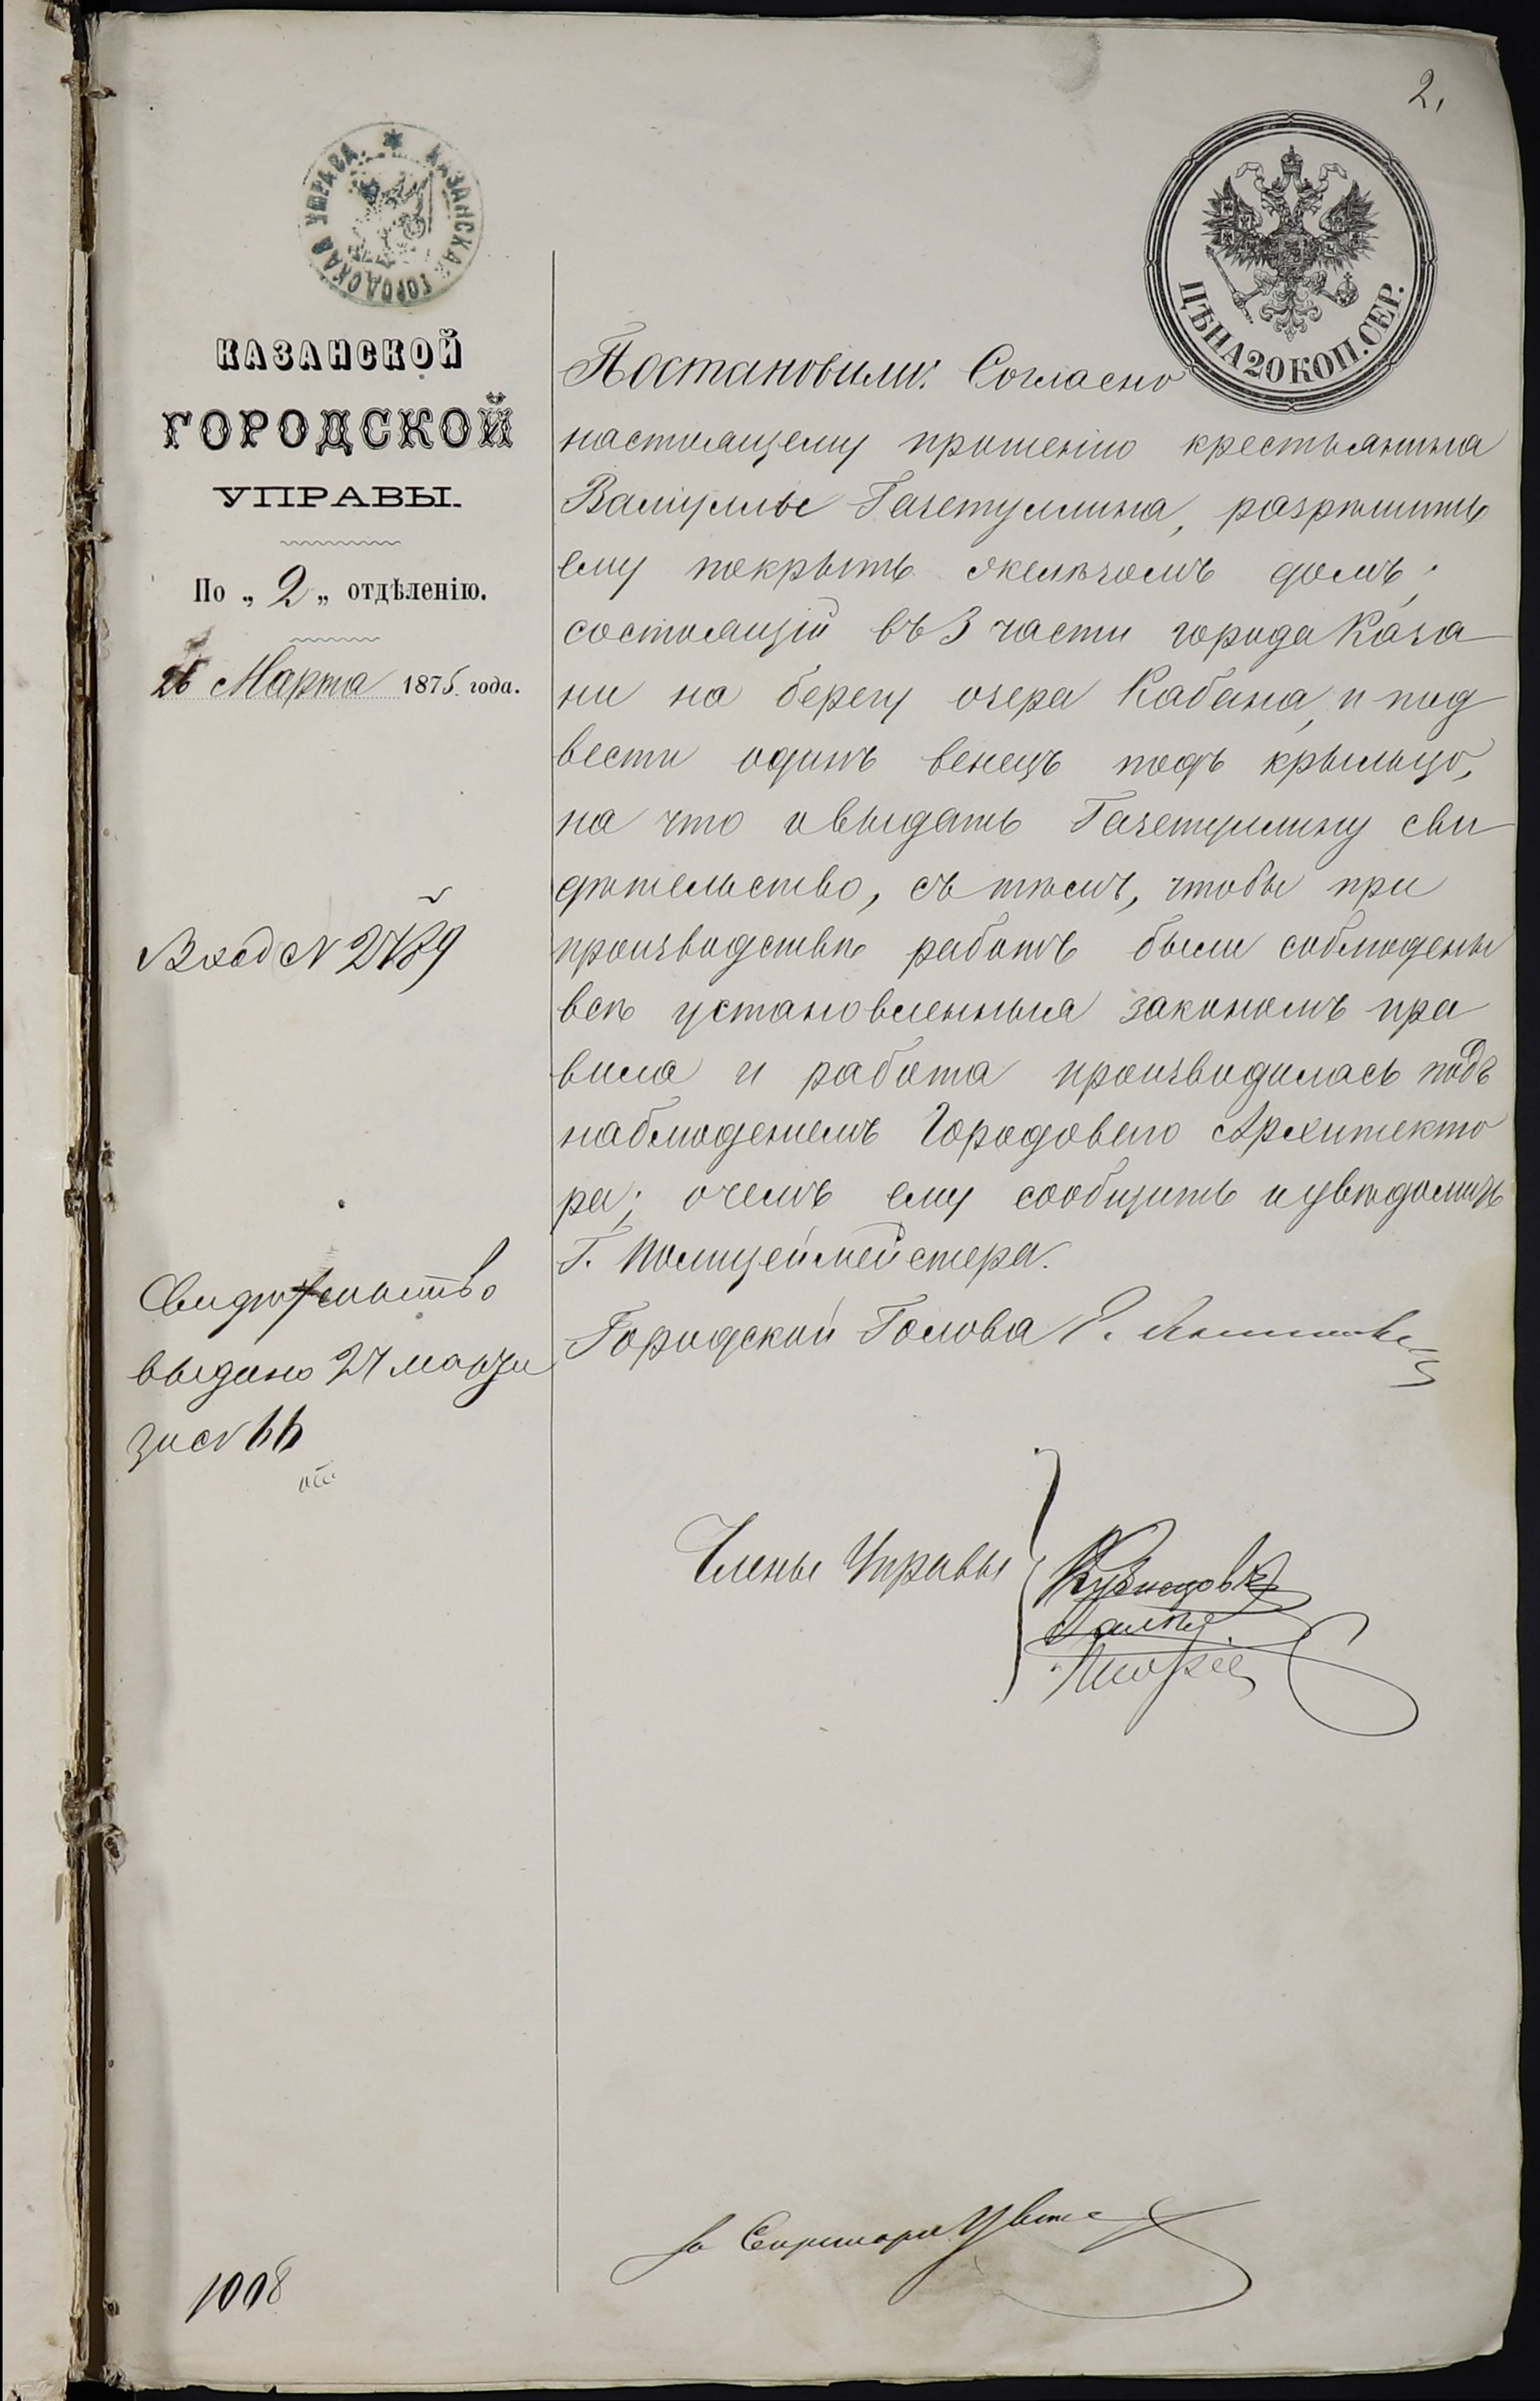 2,
КАЗАНСКАЯ ГОРОДСКАЯ УПРАВА
ЦѢНА 20 КОП. СЕР.
КАЗАНСКОЙ
ГОРОДСКОЙ
УПРАВЫ.
По „ 2 „ отдѣленію.
26 Марта 1875 года.
Вход № 2789
Свидѣтельство
выдано 27 марта
за № 66
1008
Постановили: Согласно
настоящему прошенію крестьянина
Валиуллы Газетуллина, разрѣшить
ему покрыть желѣзомъ домъ,
состоящій въ 3 части города Каза
ни на берегу озера Кабана, и под
вести одинъ венецъ подъ крыльцо,
на что и выдать Газетуллину сви
дѣтельство, съ тѣмъ, чтобы при
производствѣ работъ были соблюдены
всѣ установленныя закономъ пра
вила и работа производилась подъ
наблюденіемъ Городового Архитекто
ра; о чемъ ему сообщить и увѣдомить
Г. Полицеймейстера.
Городской Голова
Члены Управы
Кузнецовъ
За Секретаря